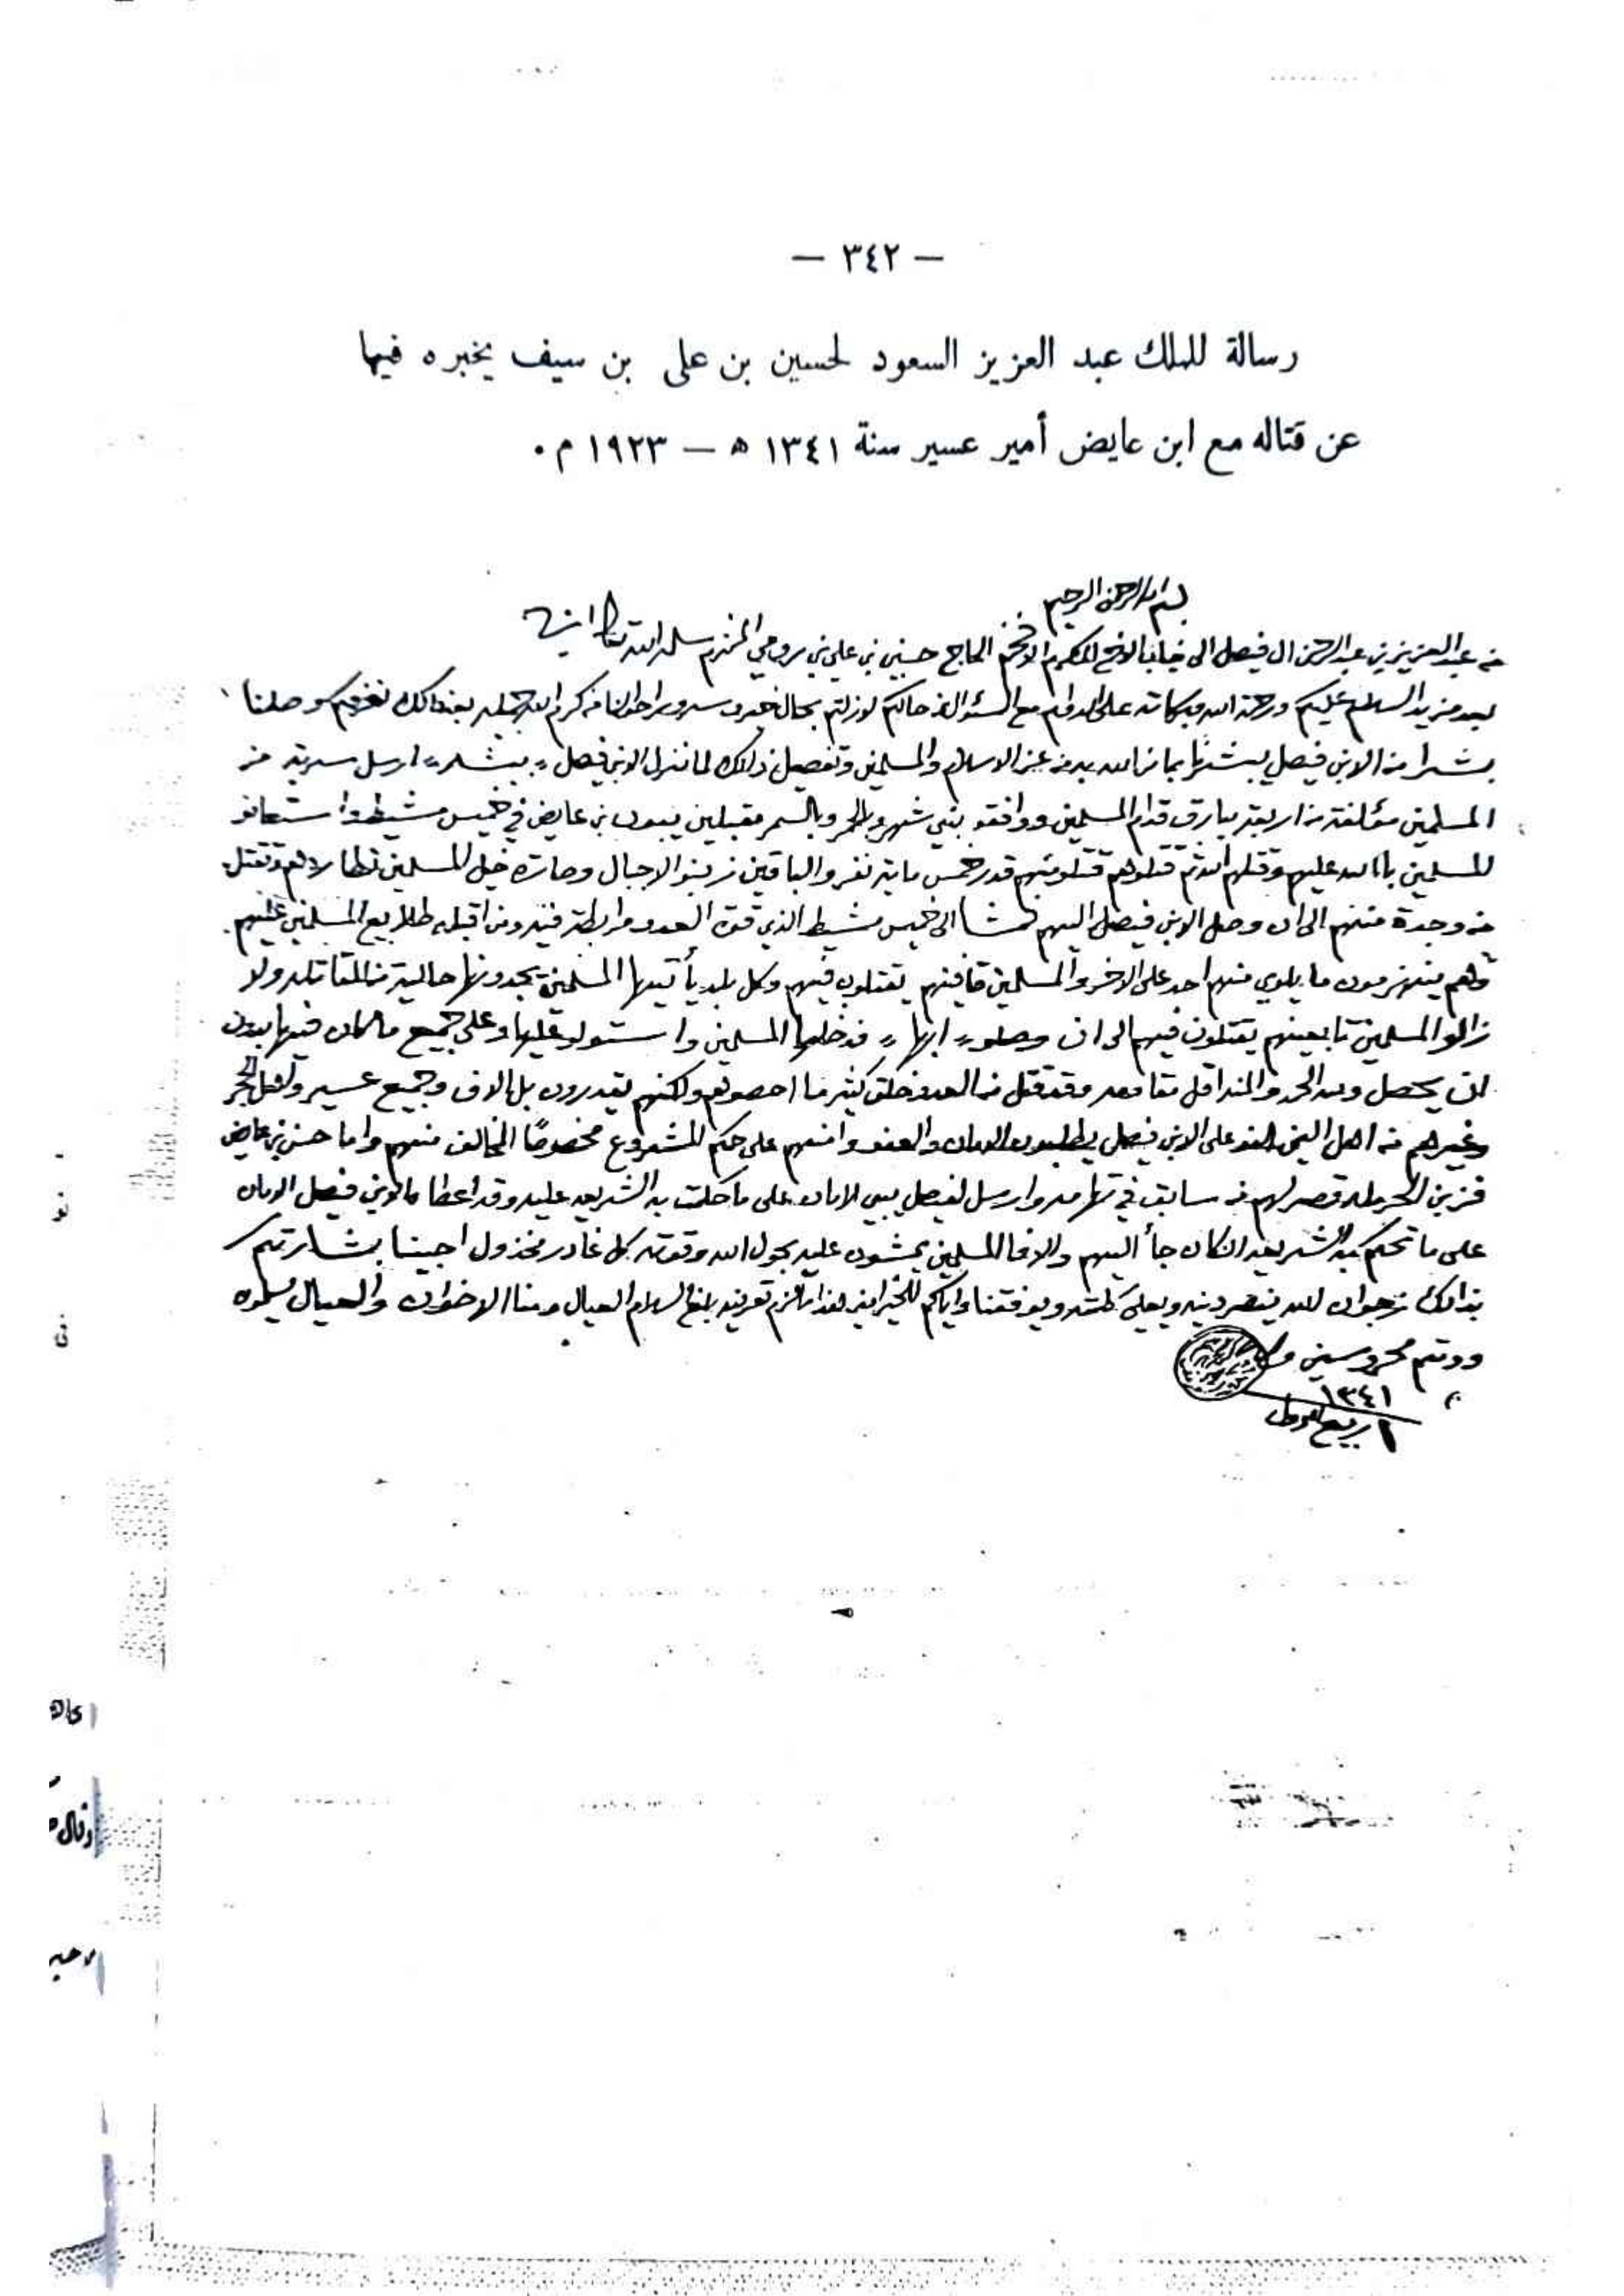 — ٣٤٢ —
رسالة للملك عبد العزيز السعود لحسين بن على بن سيف يخبره فيها
عن قتاله مع ابن عايض أمير عسير سنة ١٣٤١ ه — ١٩٢٣ م.
بسم الله الرحمن الرحيم
من عبد العزيز بن عبد الرحمن ال فيصل الى جناب الافخم المكرم الحاج حسين بن علي بن المحترم سلمه الله تعالى
بعد مزيد السلام عليكم ورحمة الله وبركاته على الدوام مع السئوال عن حالكم لازلتم بحال خير وسرور احوالنا من كرم الله جميله بعد ذالك نعرفكم وصلنا
بشرا من الابن فيصل يبشرنا بما من الله به من عز الاسلام والمسلمين وتفصيل ذالك لما نزل الابن فيصل « بيشه » ارسل سرية من
المسلمين مؤلفة من اربعة بيارق قدام المسلمين ووافقو بني شهر وبالحمر وبالسمر مقبلين يبون بن عايض في خميس مشيط واستعانو
المسلمين بالله عليهم وقتلهم الله ثم قتلوهم قتلو منهم قدر خمس ماية نفر والباقين زبنو الاجبال وصارة خيل المسلمين تطاردهم وتقتل
من وجدة منهم الى ان وصل الابن فيصل اليهم ثم مشا الى خميس مشيط الذي قوة العدو مرابطة فيه ومن اقبله طلايع المسلمين عليهم
وهم ينهزمون ما يلوي منهم احد على الاخر والمسلمين قافينهم يقتلون فيهم وكل بلد يأتيها المسلمين يجدونها خالية من المقاتله ولا
زالو المسلمين تابعينهم يقتلون فيهم الى ان وصلو « ابها » فدخلها المسلمين واستولو عليها وعلى جميع ماكان فيها بدون
ان يحصل ولله الحمد والمنه اقل مقاومه وقد قتل من العدو خلق كثير ما احصوهم ولكنهم يقدرون بل الاف وجميع عسير واهل الحجر
وغيرهم من اهل اليمن على الابن فيصل يطلبون الامان والعفو وامنهم على حكم المشروع مخصوصًا المخالف منهم واما حسن بن عايض
فزبن الحرمله قصر لهم من سابق في تهامه وارسل لفيصل يبي الامان على ما حكمت به الشريعه عليه وقد اعطاه الابن فيصل الامان
على ما تحكم به الشريعه ان كان جأ اليهم والا فالمسلمين يمشون عليه بحول الله وقوته كل غادر مخذول احببنا بشارتكم
بذالك نرجوا ان الله ينصر دينه ويعلي كلمته ويوفقنا واياكم للخير هذا مالزم تعريفه بلغ السلام العيال ومنا الاخوان والعيال يسلمون
ودمتم محروسين
١٣٤١
ربيع الاول